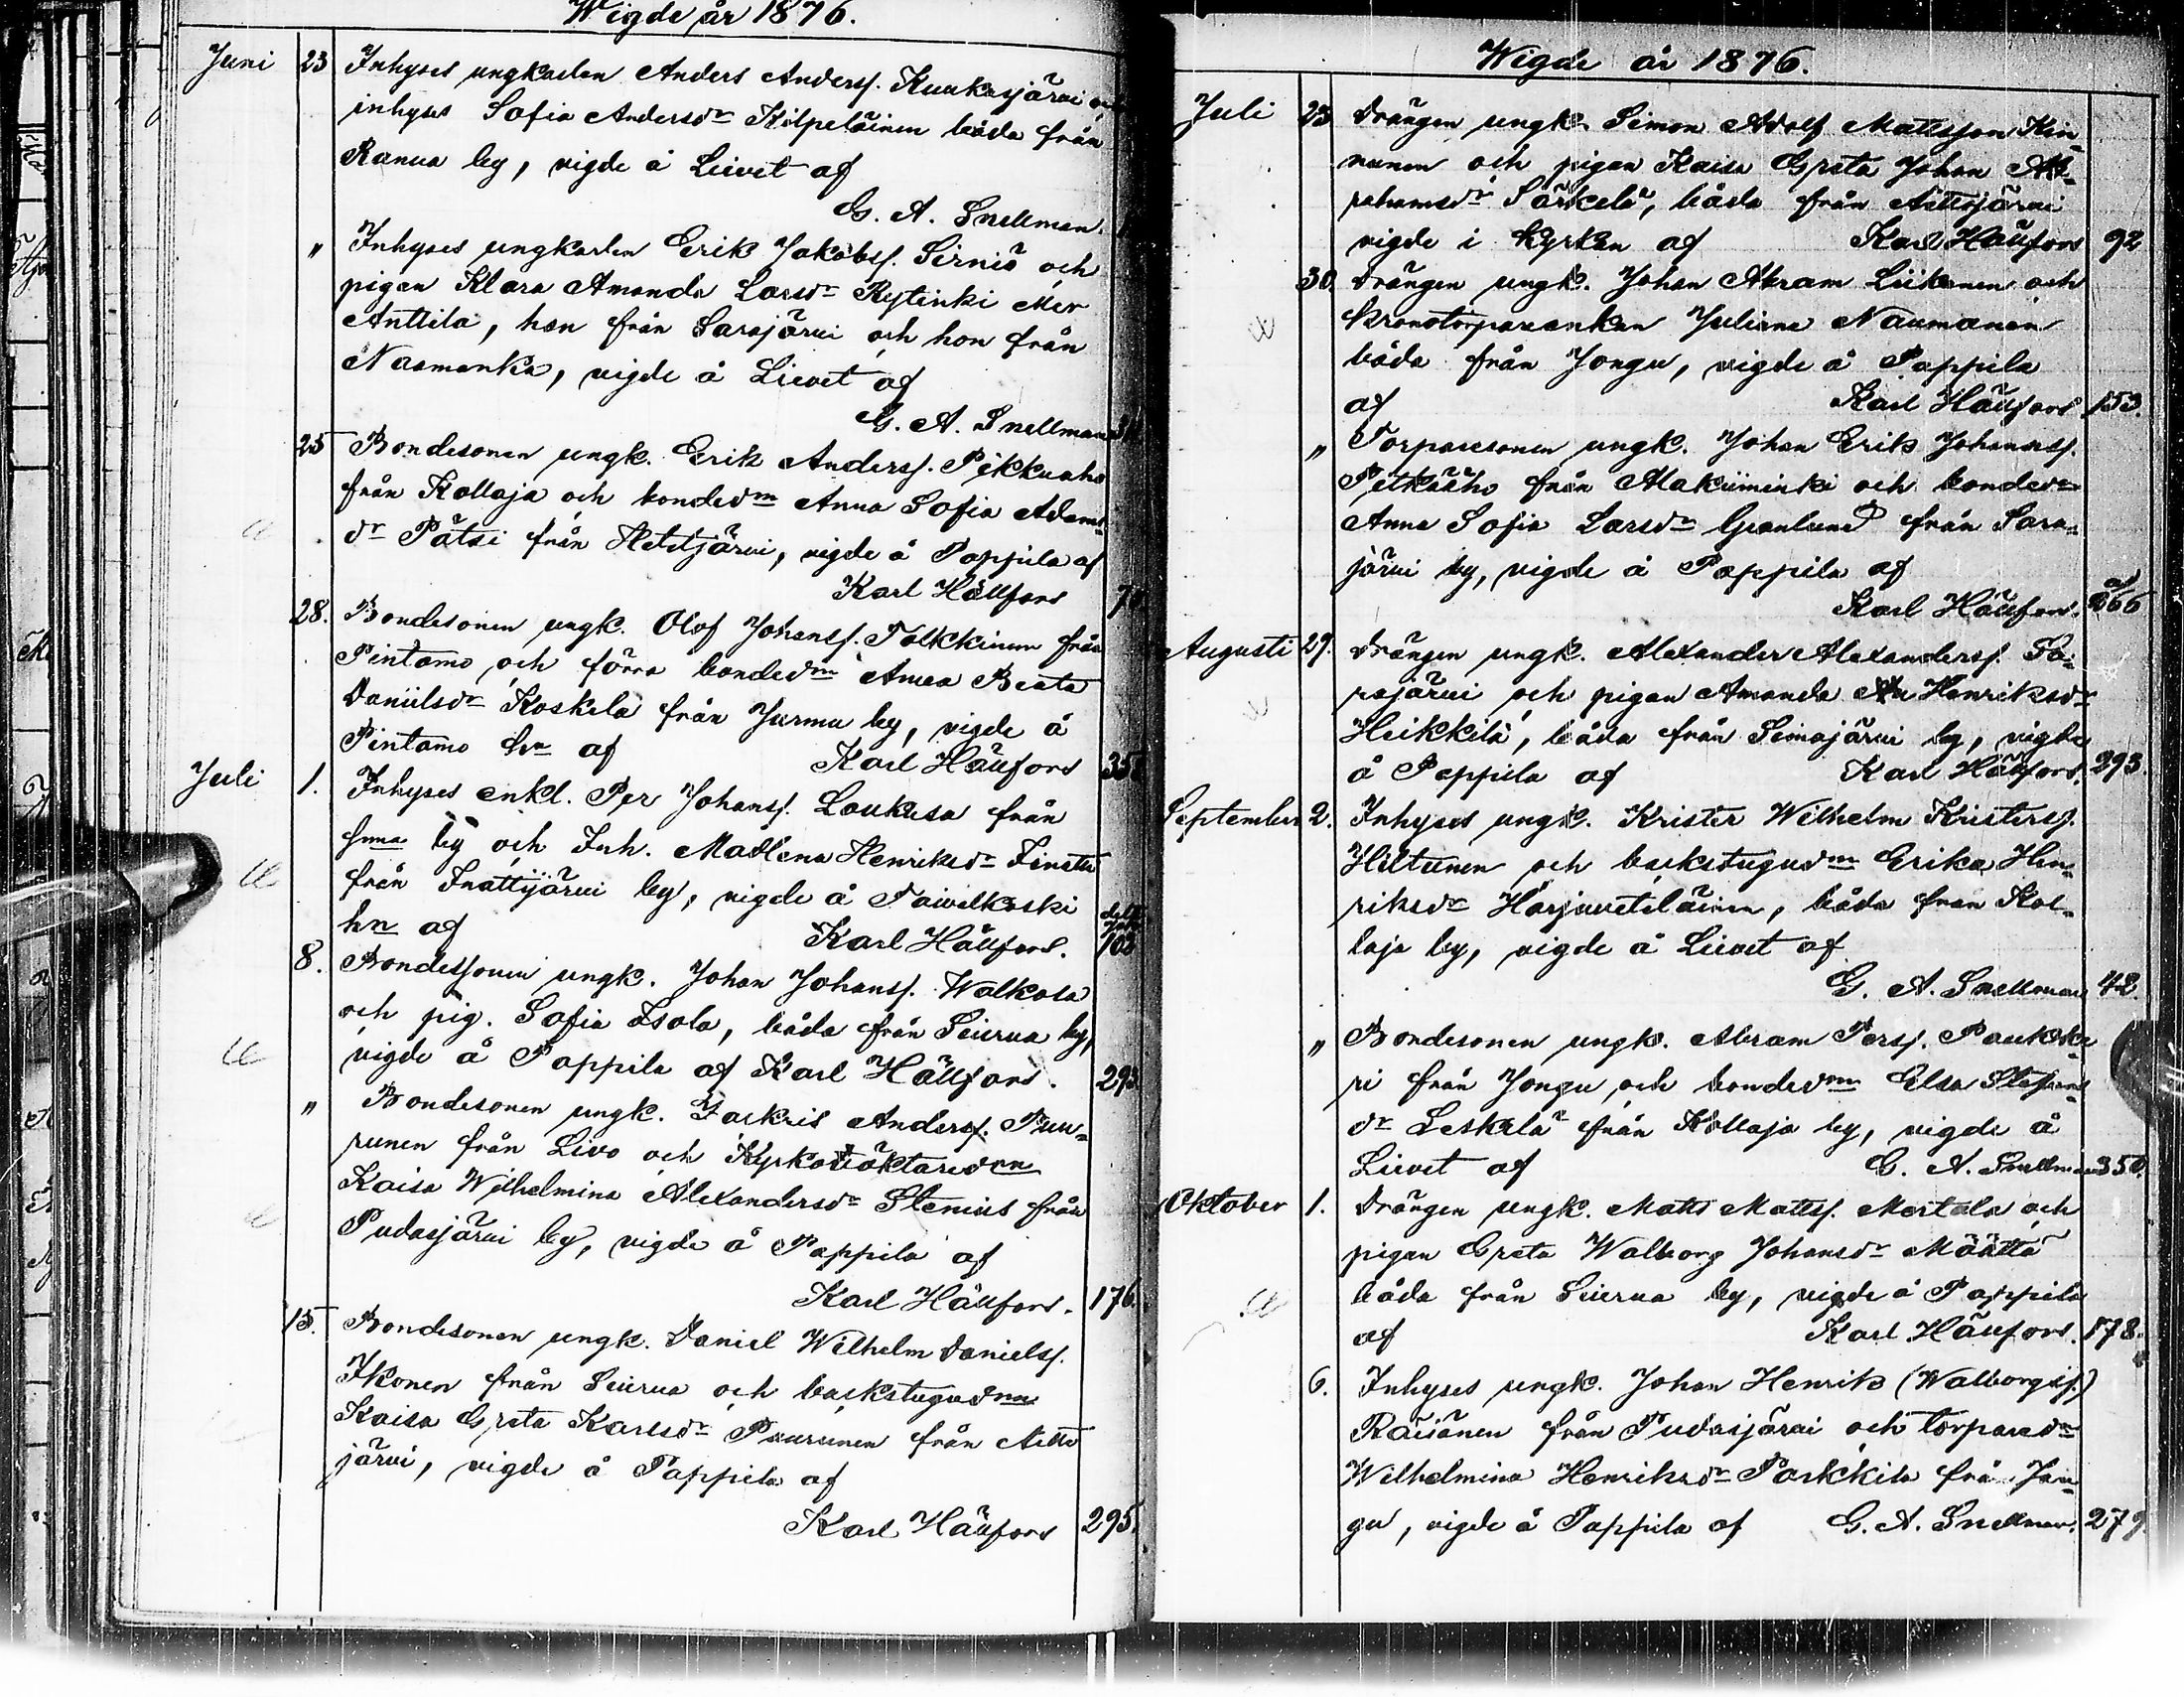 Wigde år 1876.
Juni 23 Inhyses ungkarlen Anders Anderss. Kuukasjärvi
inhyses Sofia Andersdr Kilpeläinen båda från
Ranua by, vigde å Liivet af
G. A. Snellman.
" Inhyses ungkarlen Erik Jakobss. Sirniö och
pigan Klara Amanda Larsdr Rytinki eller
Anttila, han från Sarajärvi och hon från
Naamanka, vigde å Lievet af
G. A. Snellman
25 Bondesonen ungk. Erik Anderss. Pikkuaho
från Kollaja och bondedrn Anna Sofia Adams-
dr Pätsi från Hetejärvi, vigde å Pappila af
Karl Hällfors 7
28. Bondesonen ungk. Olof Johanss. Tolkkinen från
Pintamo och förra bondedrn Anna Beata
Danielsdr Koskela från Jurmu by, vigde å
Pintamo hn af Karl Hällfors 35
Juli 1. Inhyses enkl. Per Johanss. Loukusa från
smma by och Inh. Madlena Henriksdr
från Inattijärvi by, vigde å Taivalkoski
hn af Karl Hällfors. 103
8. Bondesonen ungk. Johan Johanss. Walkola
och pig. Sofia Isola, båda från Siurua by,
vigde å Pappila af Karl Hällfors. 293.
" Bondesonen ungk. Zackris Anderss. Puu-
runen från Livo och Kyrkoväktaredrn
Kaisa Wilhelmina Alexandersdr Stenius från
Pudasjärvi by, vigde å Pappila af
Karl Hällfors. 176.
15. Bondesonen ungk. Daniel Wilhelm Danielss.
Ikonen från Siurua och backstugudrn
Kaisa Greta Karlsdr Puurunen från Aitto
järvi, vigde å Pappila af
Karl Hällfors 295.
Wigde år 1876.
Juli 23 Drängen ungk. Simon Adolf Mattsson Kin-
nunen och pigan Kaisa Greta Johan Ab-
rahamsdr Särkelä, båda från Aittojärvi
vigde i kyrkan af Karl Hällfors 92
30. Drängen ungk. Johan Abram Liikanen och
kronotorpareenkan Juliana Naumanen
båda från Jongu, vigde å Pappila
af Karl Hällfors 153.
" Torparesonen ungk. Johan Erik Johanss.
Pitkäaho från Alakiiminki och bondedr
Anna Sofia Larsdr Granlund från Sara-
järvi by, vigde å Pappila af
Karl Hällfors. 266
Augusti 29. Drängen ungk. Alexander Alexanderss. Sa-
rajärvi och pigan Amanda Henriksdr
Heikkilä, båda från Simojärvi by, vigde
å Pappila af Karl Hällfors. 293.
September 2. Inhyses ungk. Krister Wilhelm Kristerss.
Hiltunen och backstugudrn Erika Hen-
riksdr Harjuveteläinen, båda från Kol-
laja by, vigde å Liivet af
G. A. Snellman 42.
" Bondesonen ungk. Abram Perss. Paukke-
ri från Jongu och bondedrn Elsa Stefans-
dr Leskelä från Kollaja by, vigde å
Liivet af G. A. Snellman 350.
Oktober 1. Drängen ungk. Matts Mattss. Mertala och
pigan Greta Walborg Johansdr Määttä
båda från Siurua by, vigde å Pappila
af Karl Hällfors. 178.
6. Inhyses ungk. Johan Henrik (Walborgss.)
Räisänen från Pudasjärvi och torparedrn
Wilhelmina Henriksdr Parkkila från Jon-
gu, vigde å Pappila af G. A. Snellman. 279